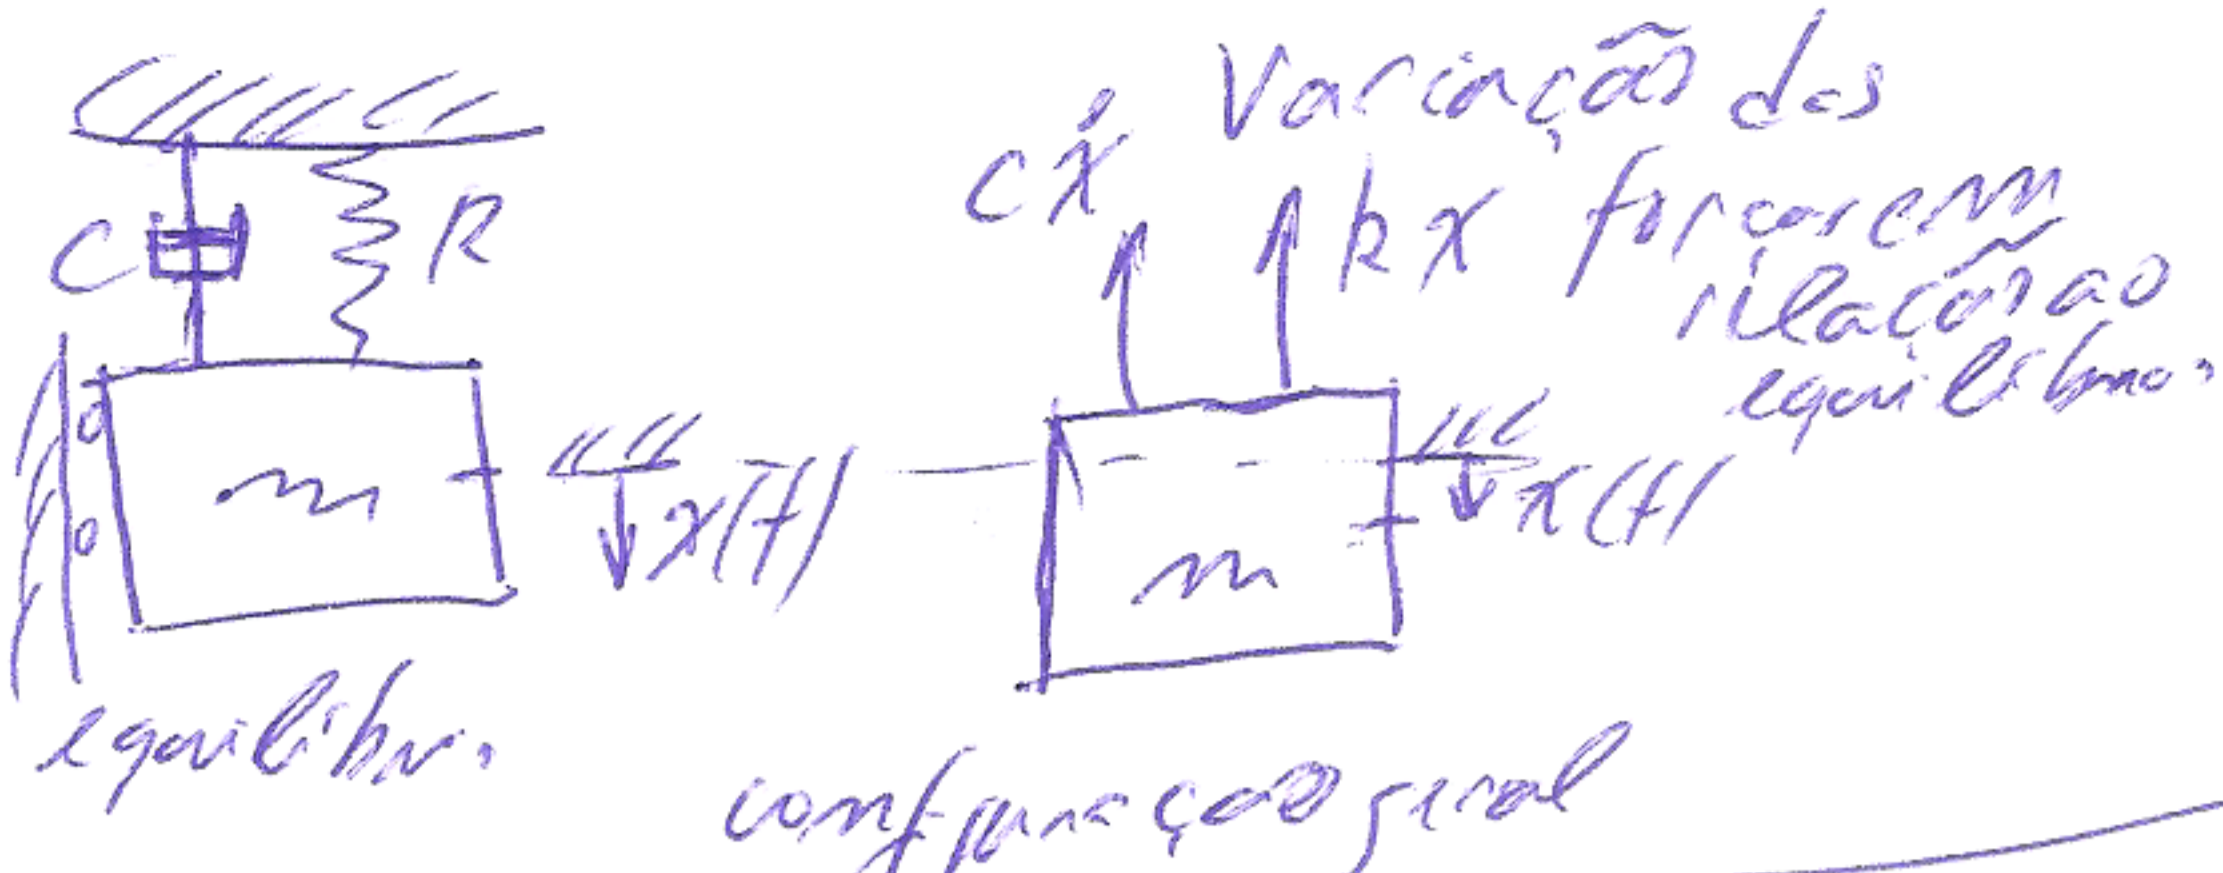 C
k
m
x(t)
equilíbrio
cẋ
kx
Variação das
forças em
relação ao
equilíbrio.
m
x(t)
configuração geral